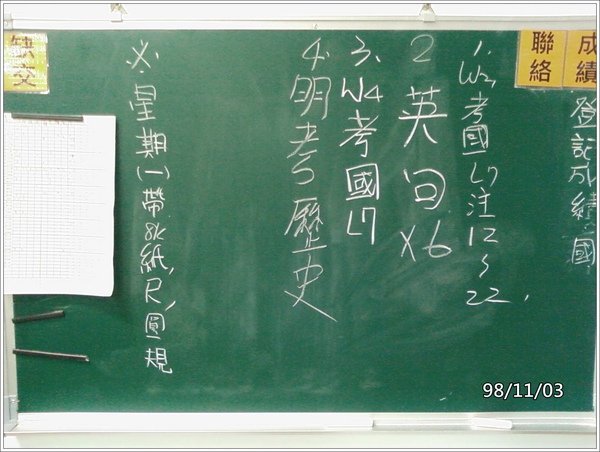 成績
登記成績:國
聯絡
1. W3考國L7注12~22,
2 英句x6
3. W4考國L7
4. 明考歷史
※.星期(一)帶8K紙,尺,圓規
缺交
98/11/03